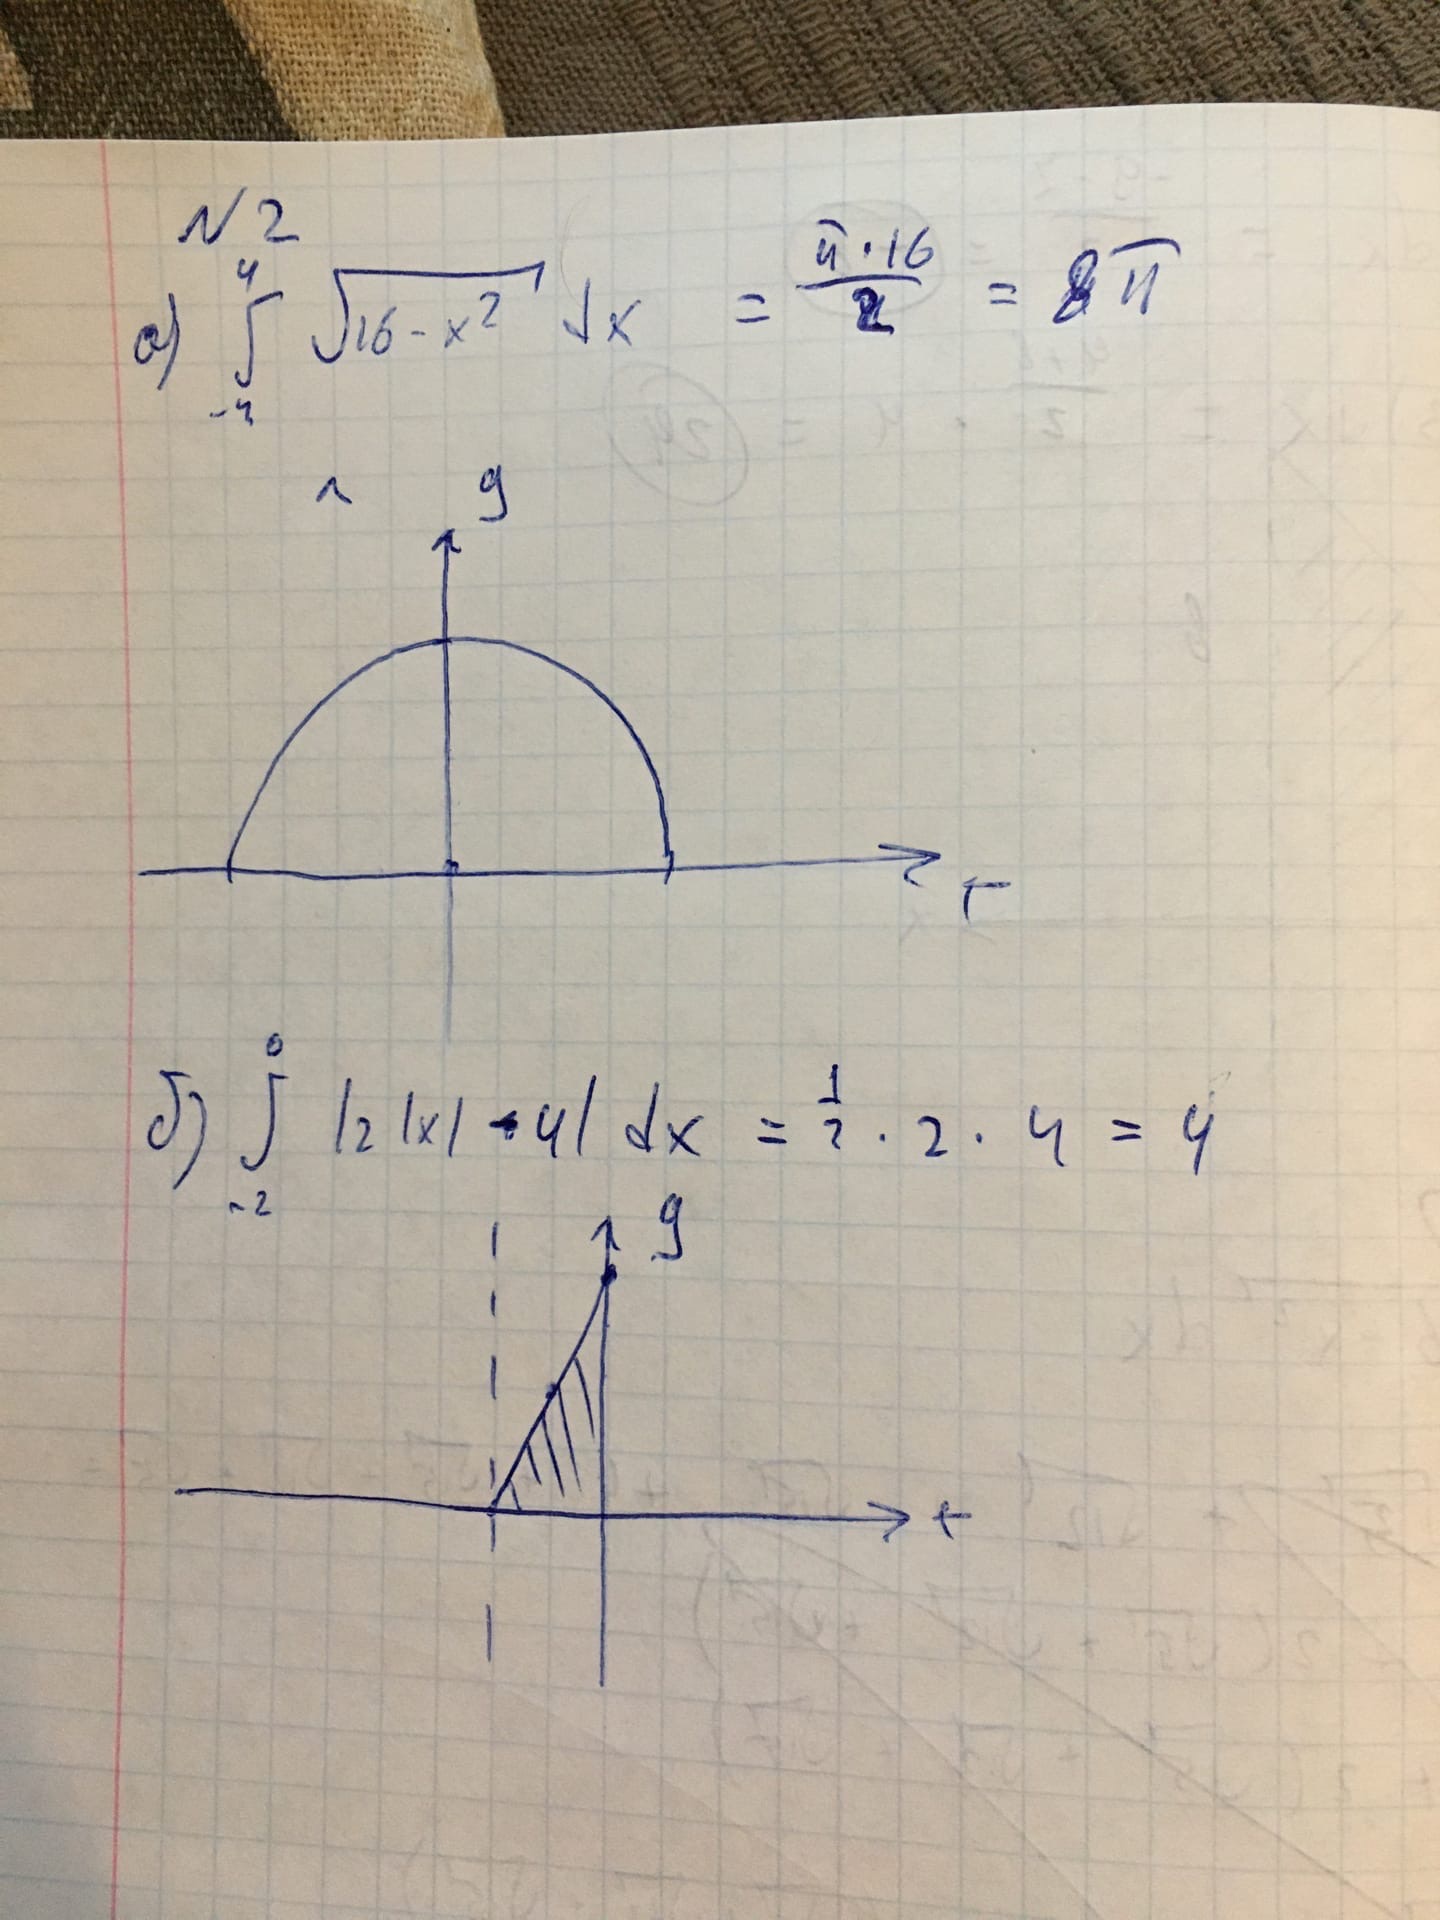 №2
а) ∫₋₄⁴ √(16-x²) dx = (π·16)/2 = 8π
y
x
б) ∫₋₂⁰ |2|x| - 4| dx = 1/2 · 2 · 4 = 4
y
x